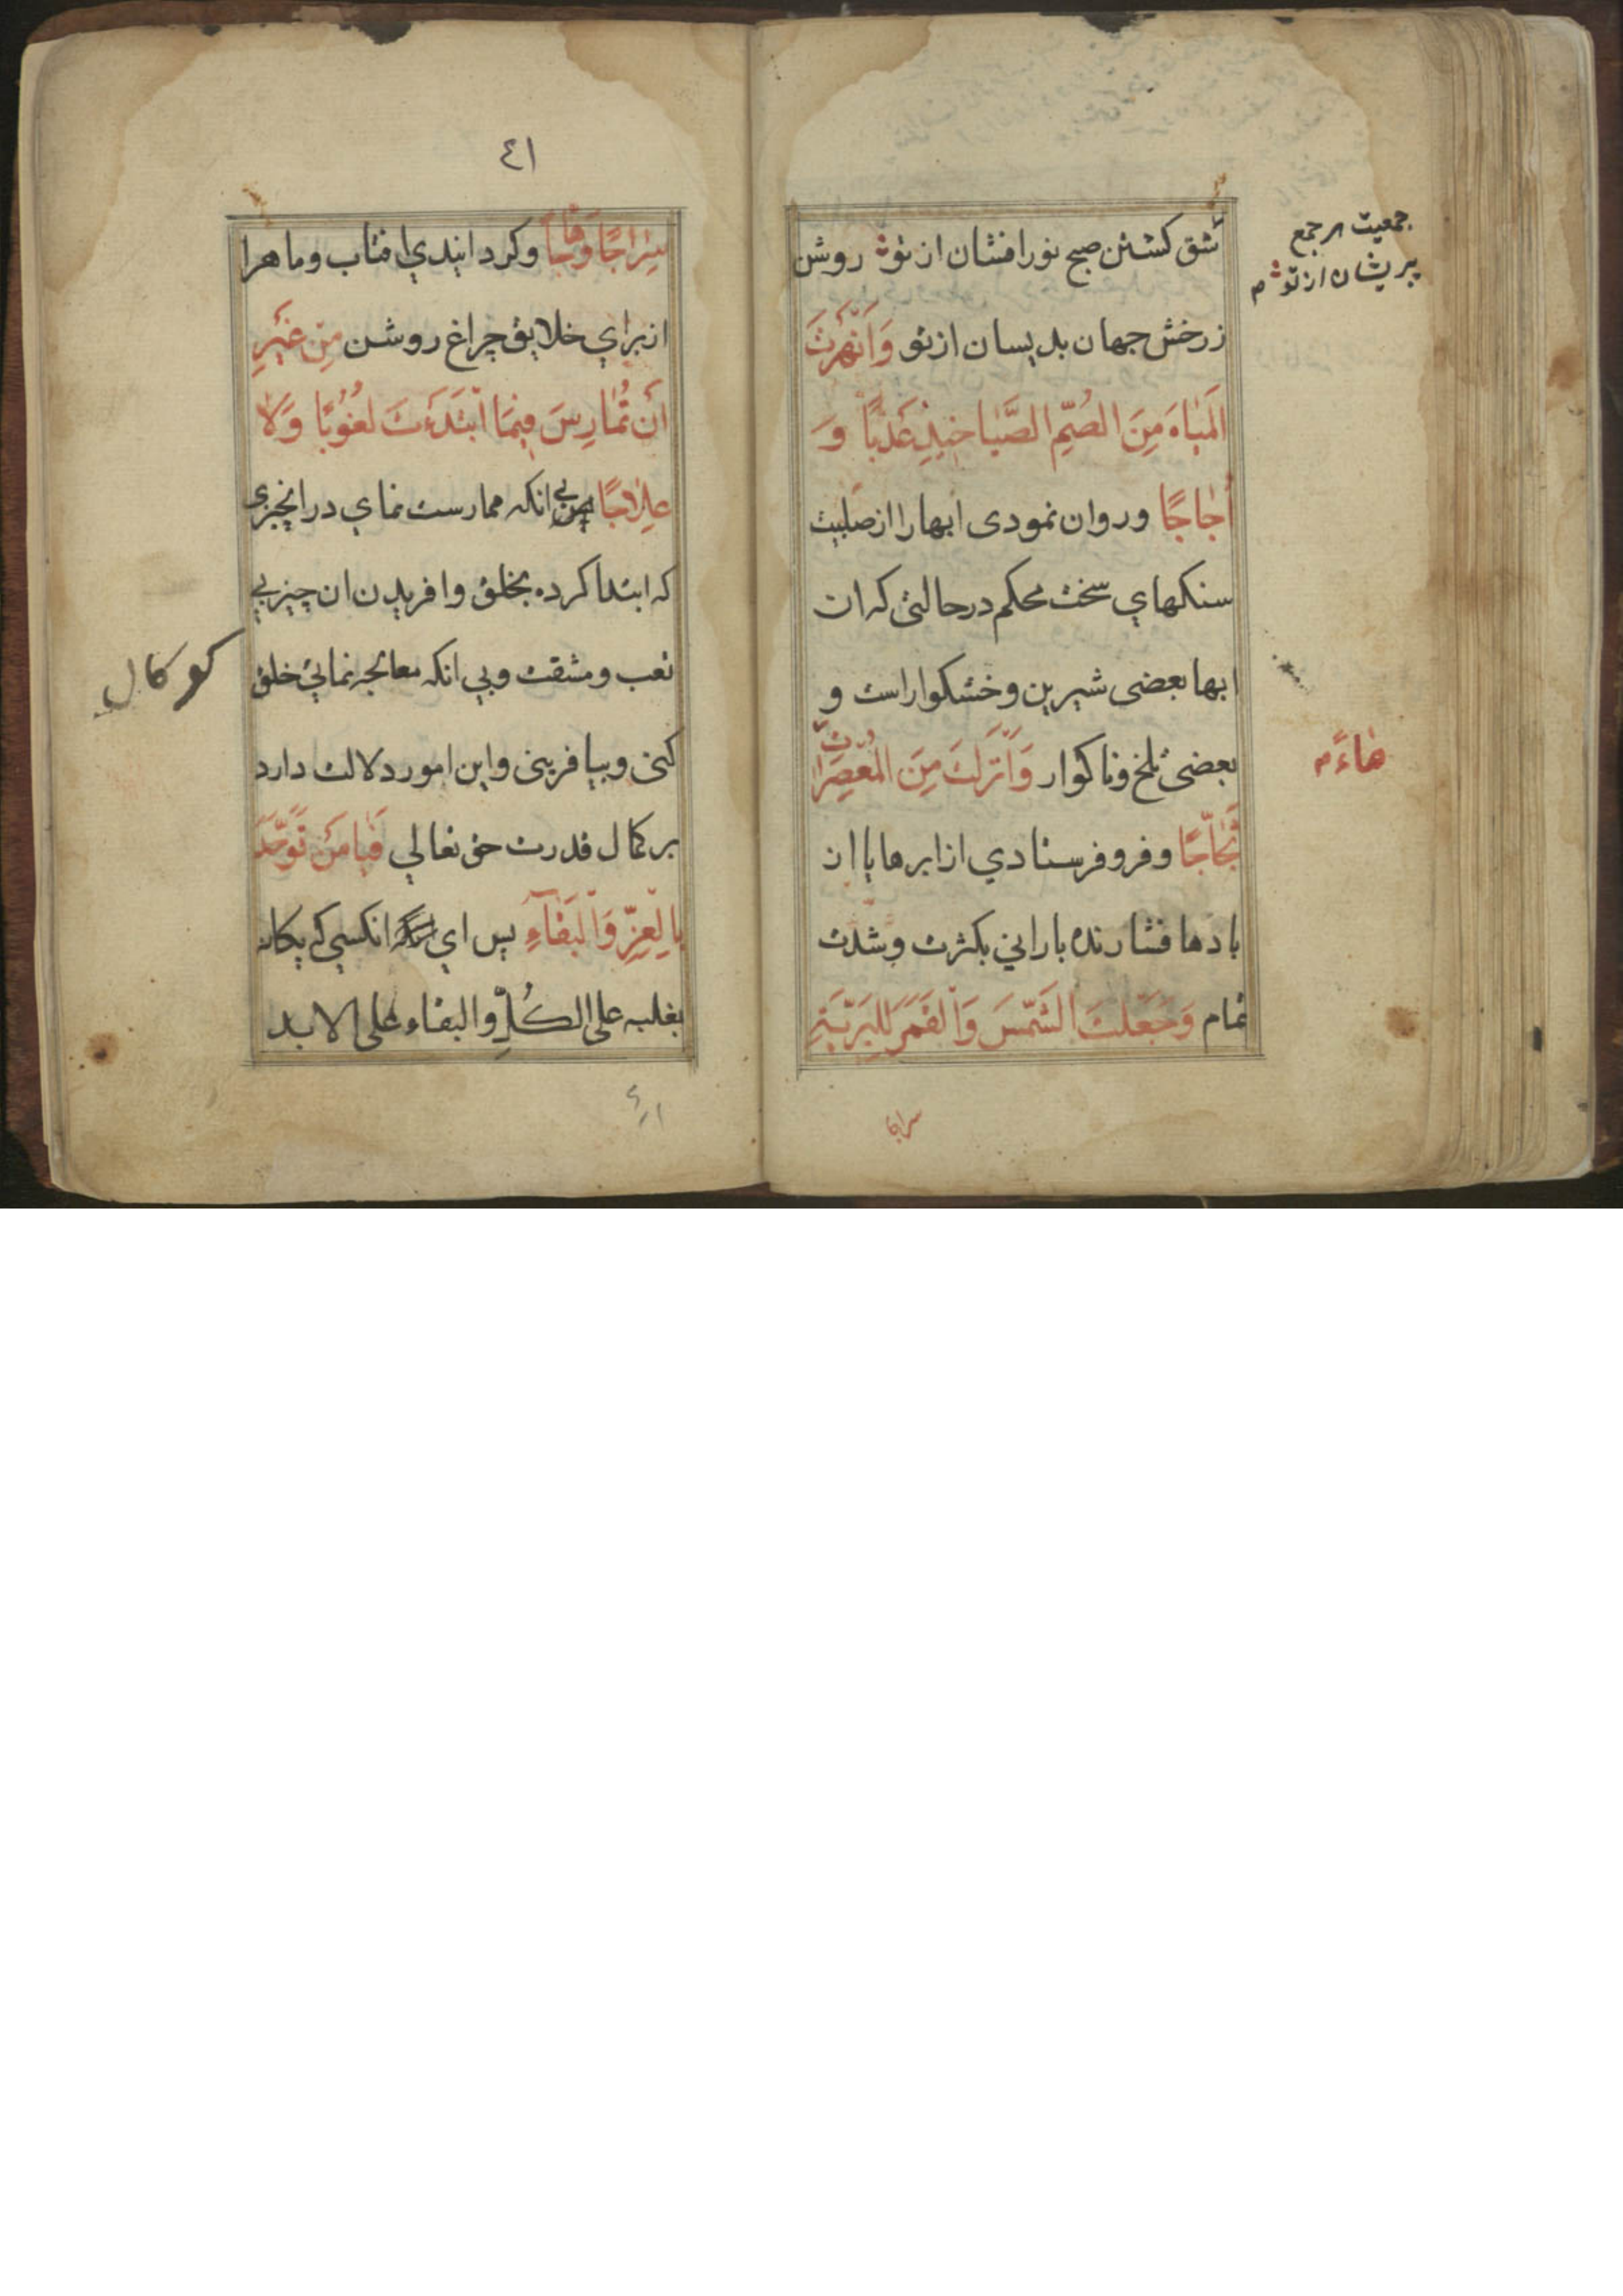 شق کشتن صبح نور افشان از تو روشن
ز رخش جهان بدیسان از تو وَاَنْهَرْتَ
الْمِیَاهَ مِنَ الصُّمِّ الصَّیَاخِیدِ عَذْبًا وَ
اُجَاجًا و روان نمودی ابها را از صلبیت
سنکهای سخت محکم در حالتی که ان
ابها بعضی شیرین و خشکوار است و
بعضی تلخ و ناکوار وَاَنْزَلْتَ مِنَ الْمُعْصِرَاتِ
ثَجَّاجًا و فرو فرستادی از ابرها یا از
بادها فشارنده بارانی بکثرت و شدت
تمام وَجَعَلْتَ الشَّمْسَ وَالْقَمَرَ لِلْبَرِیَّةِ
جمعیت هر جمع
پریشان از تو م
هاءَ م
سراجا
٤١
سِرَاجًا وَهَّاجًا و کردانیدی افتاب و ماه را
از برای خلایق چراغ روشن مِنْ غَیْرِ
اَنْ تُمَارِسَ فِیمَا ابْتَدَءْتَ لُغُوبًا وَلَا
عِلَاجًا بی انکه ممارست نمای در انچیزی
که ابتدا کرده بخلق و افریدن ان چیز بی
تعب و مشقت و بی انکه معالجه نمایی خلق
کنی و بیافرینی و این امور دلالت دارد
بر کمال قدرت حق تعالی فَیَا مَنْ تَوَحَّدَ
بِالْعِزِّ وَالْبَقَاۤءِ پس ای انکسی که یکانه
بغلبه علی الکُلِّ و البقاء علی الابد